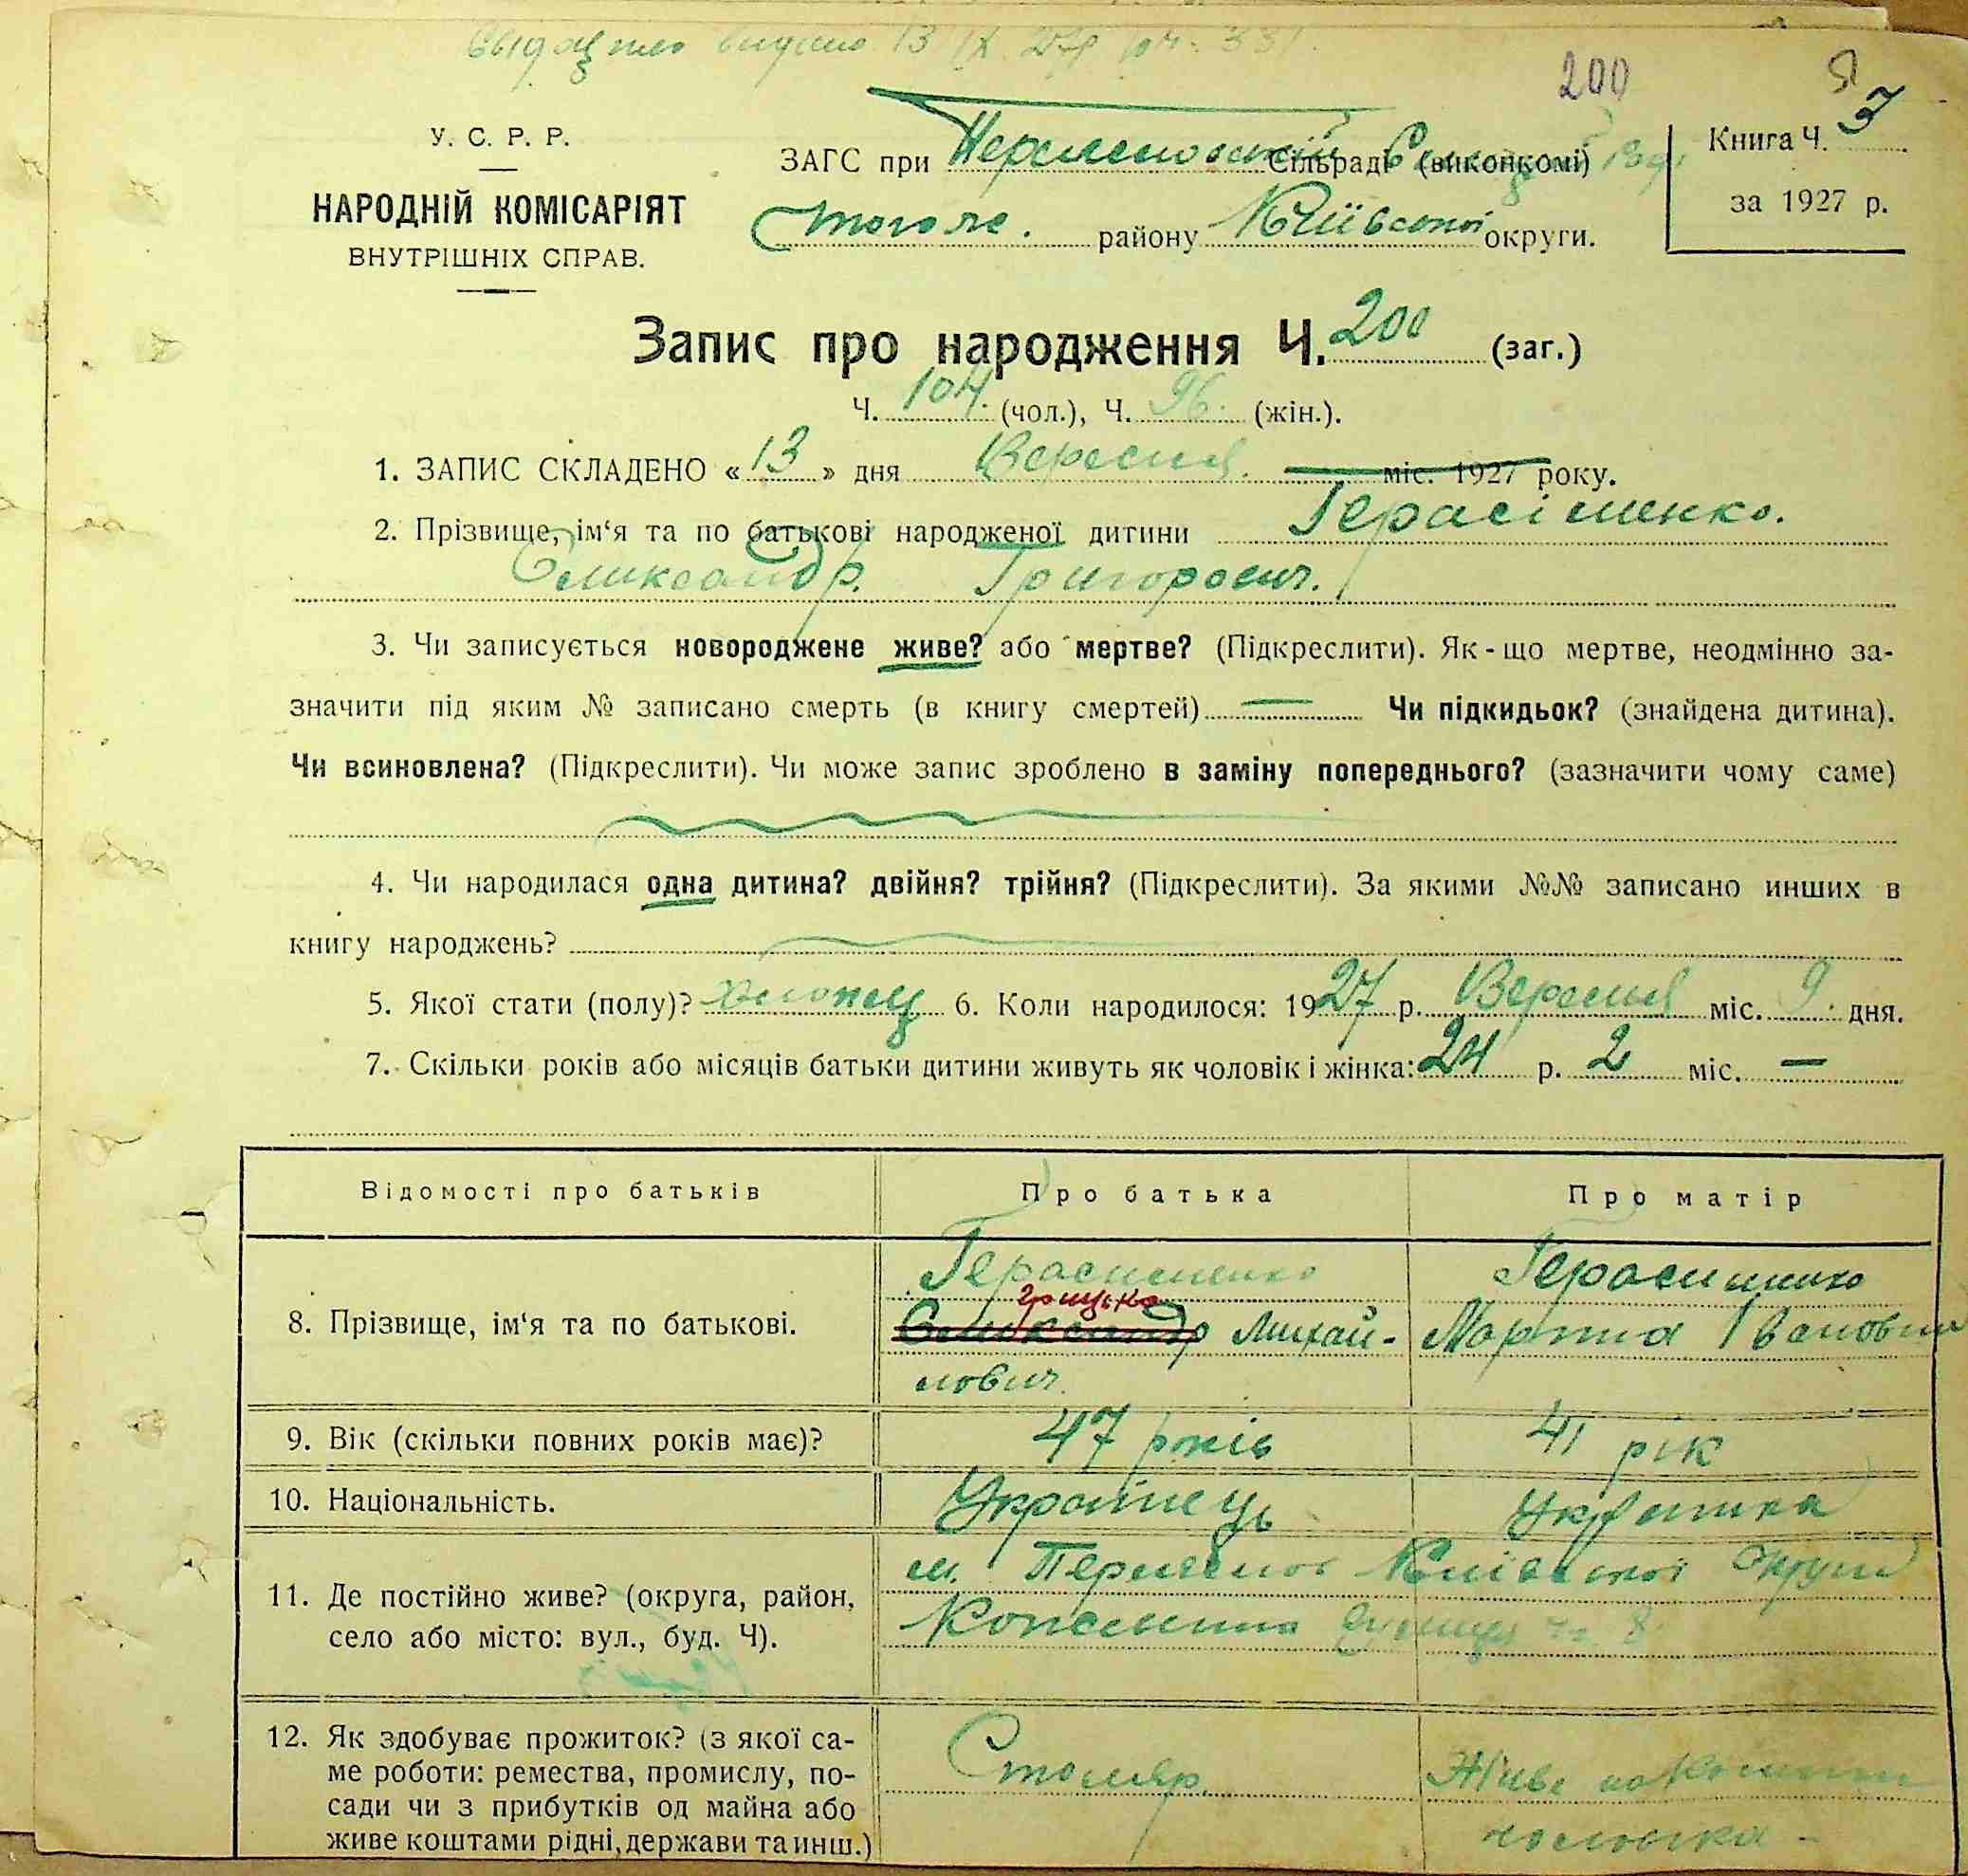 видано 13 IX 27р. ч. 331
200
У. С. Р. Р.
НАРОДНІЙ КОМІСАРІЯТ
ВНУТРІШНІХ СПРАВ.
ЗАГС при Сільраді (виконкомі)
того ж. району Київської округи.
Книга Ч. 3
за 1927 р.
Запис про народження Ч. 200 (заг.)
Ч. 104. (чол.), Ч. 96. (жін.).
1. ЗАПИС СКЛАДЕНО «13» дня Вересня. міс. 1927 року.
2. Прізвище, ім‘я та по батькові народженої дитини Герасіменко.
Олександр. Григорович.
3. Чи записується новороджене живе? або мертве? (Підкреслити). Як-що мертве, неодмінно за-
значити під яким № записано смерть (в книгу смертей) — Чи підкидьок? (знайдена дитина).
Чи всиновлена? (Підкреслити). Чи може запис зроблено в заміну попереднього? (зазначити чому саме)
4. Чи народилася одна дитина? двійня? трійня? (Підкреслити). За якими №№ записано инших в
книгу народжень?
5. Якої стати (полу)? хлопець 6. Коли народилося: 1927 р. Вересня міс. 9. дня.
7. Скільки років або місяців батьки дитини живуть як чоловік і жінка: 24 р. 2 міс. —
Відомості про батьків Про батька Про матір
8. Прізвище, ім‘я та по батькові.
Герасименко
грицько
Олександр Михай-
лович.
Герасименко
Марта Івановна
9. Вік (скільки повних років має)? 47 років 41 рік
10. Національність. Українець Українка
11. Де постійно живе? (округа, район,
село або місто: вул., буд. Ч).
м. Київської округи
вулиця 8
12. Як здобуває прожиток? (з якої са-
ме роботи: ремества, промислу, по-
сади чи з прибутків од майна або
живе коштами рідні, держави та инш.)
Столяр.
Живе на кошти
чоловіка -